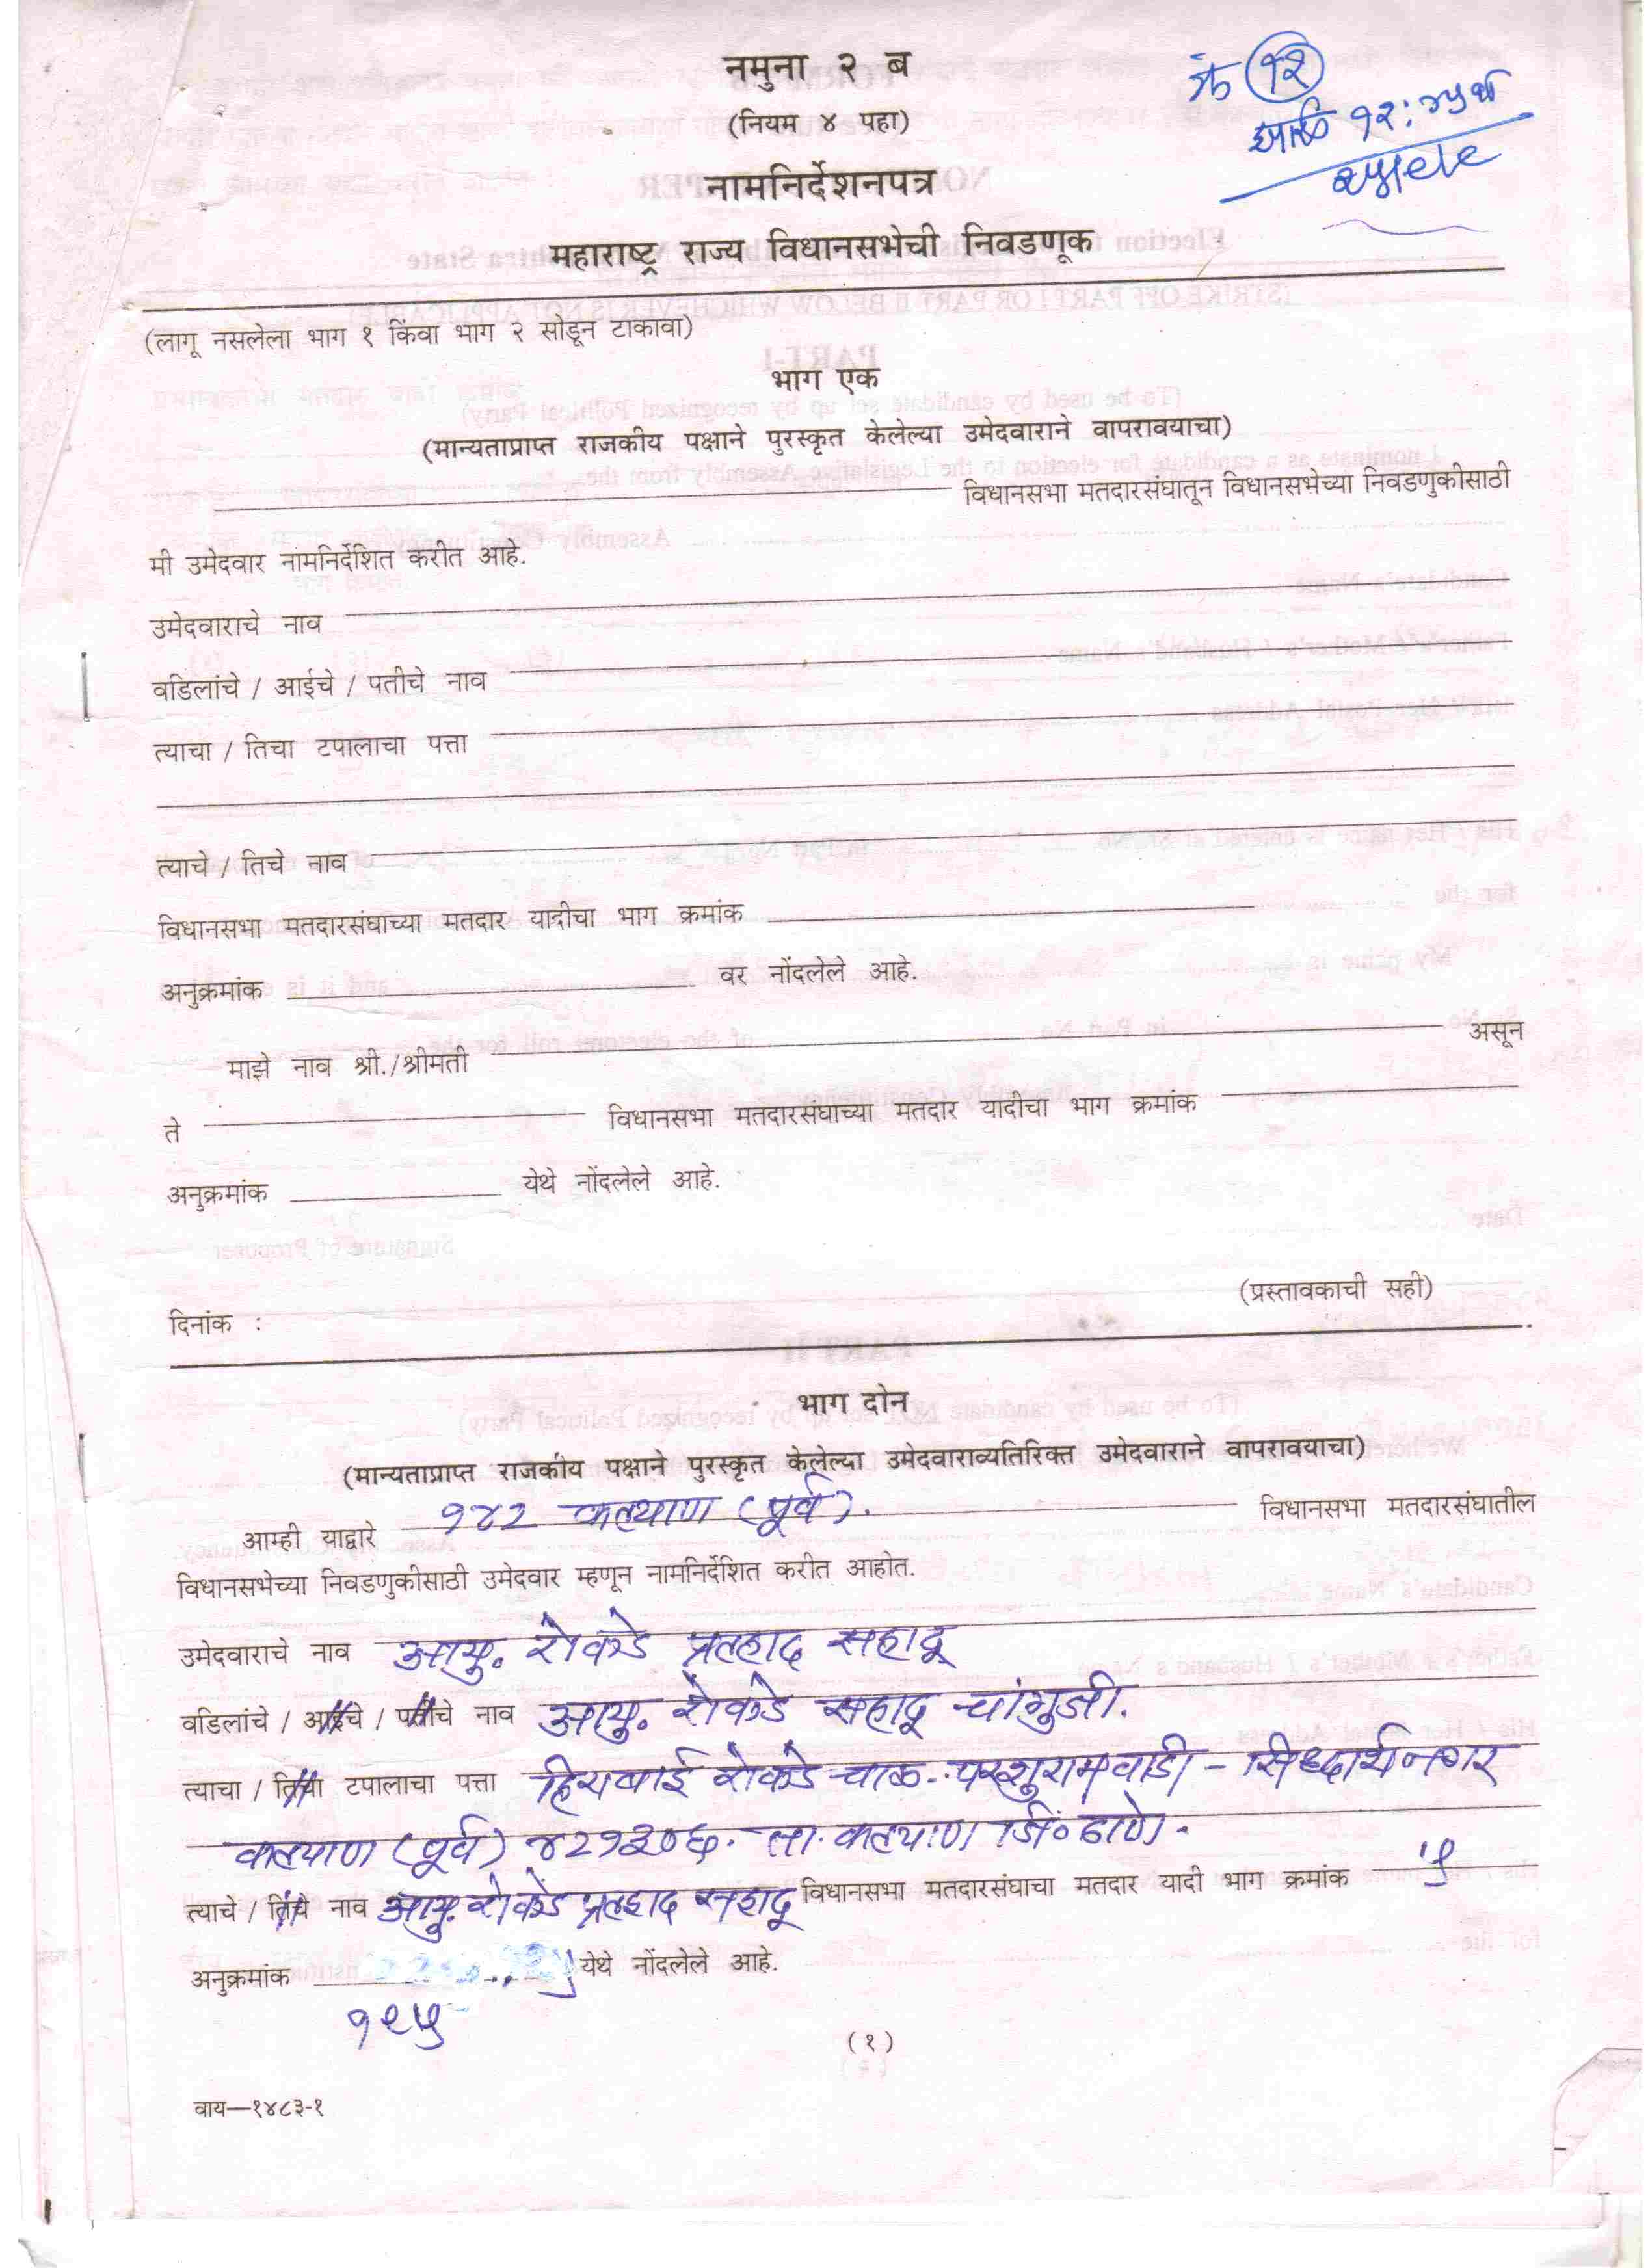 नमुना २ ब
(नियम ४ पहा)
नामनिर्देशनपत्र
महाराष्ट्र राज्य विधानसभेची निवडणूक
(लागू नसलेला भाग १ किंवा भाग २ सोडून टाकावा)
भाग एक
(मान्यताप्राप्त राजकीय पक्षाने पुरस्कृत केलेल्या उमेदवाराने वापरावयाचा)
विधानसभा मतदारसंघातून विधानसभेच्या निवडणुकीसाठी
मी उमेदवार नामनिर्देशित करीत आहे.
उमेदवाराचे नाव
वडिलांचे / आईचे / पतीचे नाव
त्याचा / तिचा टपालाचा पत्ता
त्याचे / तिचे नाव
विधानसभा मतदारसंघाच्या मतदार यादीचा भाग क्रमांक
अनुक्रमांक वर नोंदलेले आहे.
माझे नाव श्री./श्रीमती असून
ते विधानसभा मतदारसंघाच्या मतदार यादीचा भाग क्रमांक
अनुक्रमांक येथे नोंदलेले आहे.
(प्रस्तावकाची सही)
दिनांक :
भाग दोन
(मान्यताप्राप्त राजकीय पक्षाने पुरस्कृत केलेल्या उमेदवाराव्यतिरिक्त उमेदवाराने वापरावयाचा)
आम्ही याद्वारे १४२ कल्याण (पूर्व). विधानसभा मतदारसंघातील
विधानसभेच्या निवडणुकीसाठी उमेदवार म्हणून नामनिर्देशित करीत आहोत.
उमेदवाराचे नाव आयु. रोकडे प्रल्हाद सहादू
वडिलांचे / आईचे / पतीचे नाव आयु. रोकडे सहादू चांगुजी.
त्याचा / तिचा टपालाचा पत्ता हिराबाई रोकडे चाळ. परशुरामवाडी - सिध्दार्थनगर
कल्याण (पूर्व) ४२१३०६. ता. कल्याण जि० ठाणे.
त्याचे / तिचे नाव आयु. रोकडे प्रल्हाद सहादू विधानसभा मतदारसंघाचा मतदार यादी भाग क्रमांक
अनुक्रमांक येथे नोंदलेले आहे.
१९५
(१)
वाय—१४८३-१